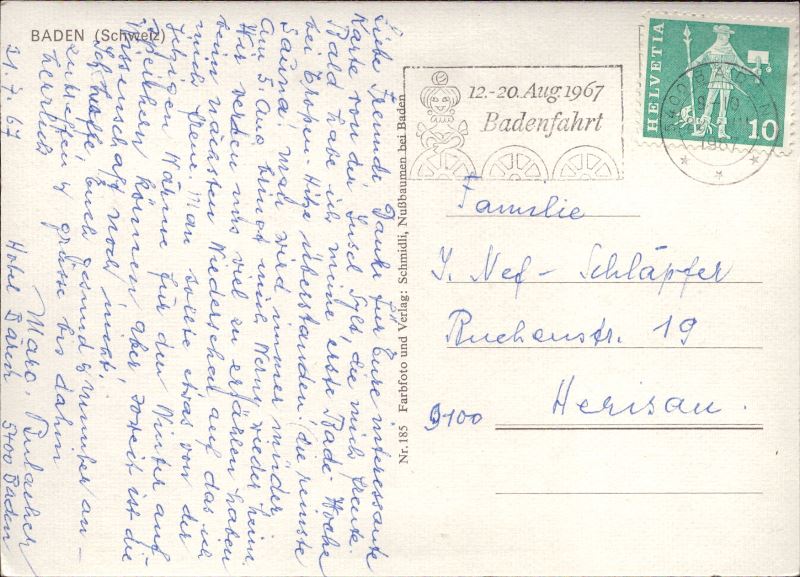 BADEN (Schweiz)
21.7.67
Liebe Freunde, Danke für Eure interessante
Karte von der Insel Sylt, die mich freute.
Bald habe ich meine erste Bade-Woche
bei Tropen Hitze überstanden, die reinste
Sauna, mal wird immer müder
Am 5 Aug bringt mich Werny wieder heim.
Wir werden uns viel zu erzählen haben
beim nächsten Wiedersehen auf das ich
mich freue. Man sollte etwas von der
jetzigen Wärme für den Winter auf-
speichern können. Aber soweit ist die
Wissenschaft noch nicht.
Ich hoffe Euch gesund & munter an-
zutreffen & grüsse bis dahin
herzlich
Marg.
Hotel Bären 5400 Baden
Nr. 185 Farbfoto und Verlag: Schmidli, Nußbaumen bei Baden
12.-20. Aug 1967
Badenfahrt
HELVETIA
10
5400 BADEN
1967
Familie
J. Nef - Schläpfer
Buchenstr. 19
9100 Herisau.